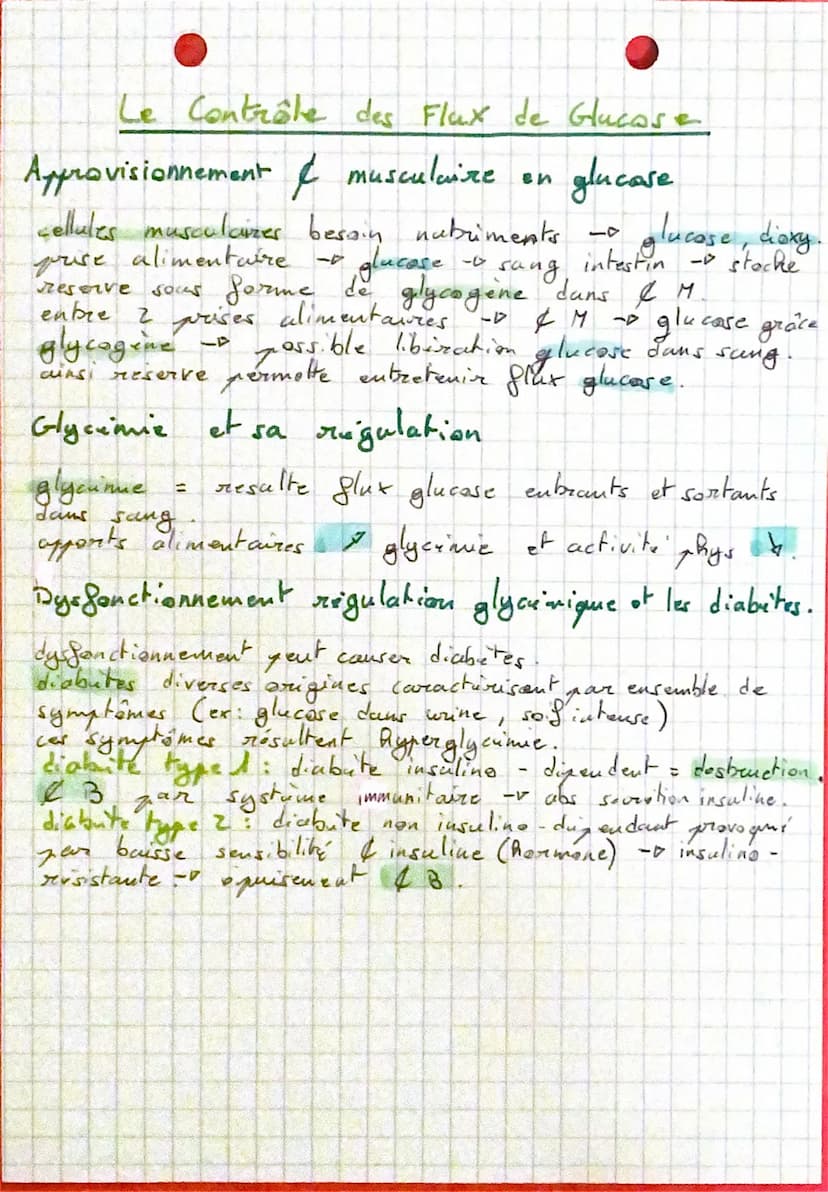 Le Contrôle des Flux de Glucose
Approvisionnement ₵ musculaire en glucose
cellules musculaires besoin nutriments → glucose, dioxy.
prise alimentaire → glucose → sang intestin → stocke
reserve sous forme de glycogène dans ₵ M.
entre 2 prises alimentaires → ₵ M → glucose grâce
glycogène → possible libération glucose dans sang.
ainsi reserve permette entretenir flux glucose.
Glycémie et sa régulation
glycémie = resulte flux glucose entrants et sortants
dans sang.
apports alimentaires ↗ glycémie et activité phys ↘.
Dysfonctionnement régulation glycémique et les diabètes.
dysfonctionnement peut causer diabètes.
diabètes diverses origines caractérisent par ensemble de
symptômes (ex: glucose dans urine, soif intense)
ces symptômes résultent hyperglycémie.
diabète type 1 : diabète insulino - dépendent = destruction.
₵ B par système immunitaire → abs secrétion insuline.
diabète type 2 : diabète non insulino - dépendant provoqué
par baisse sensibilité ₵ insuline (hormone) → insulino -
résistante → epuisement ₵ B.